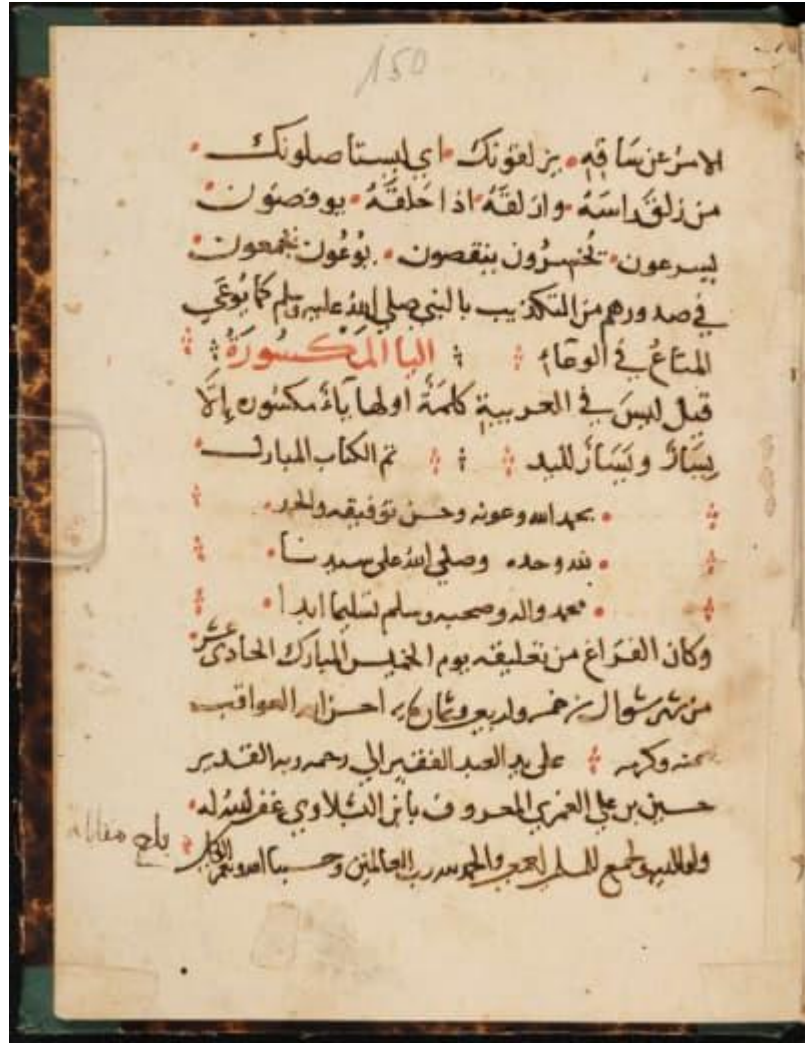 150
الامر عن ساقه يزلقونك اي ليستاصلونك
من زلق راسه وازلقه اذا حلقه يوفضون
يسرعون تُخسِرُون ينقصون يُوعُون يجمعون
في صدورهم من التكذيب بالنبي صلي الله عليه وسلم كما يُوعَي
المتاعُ في الوعاء اليا المَكسُورَةُ
قيل ليسَ في العربية كلمَةٌ اولها ياءٌ مكسُوره إلاّ
يِسَارٌ ويَسَارٌ لليد تم الكتاب المبارك
بحمد الله وعونه وحسن توفيقه والحمد
لله وحده وصلي الله علي سيدنا
محمد واله وصحبه وسلم تسليما ابدا
وكان الفراغ من تعليقه يوم الخميس المبارك الحادي عشر
من شهر شوال خمس واربعين وثمان مايه احسن الله العواقب
بمنه وكرمه علي يد العبد الفقير الي رحمه ربه القدير
حسين بن علي العمري المعروف بابن الشلاوي غفر الله له
ولوالديه ولجميع المسلمين اجمعين والحمد لله رب العالمين وحسبنا الله ونعم الوكيل
بلغ مقابله